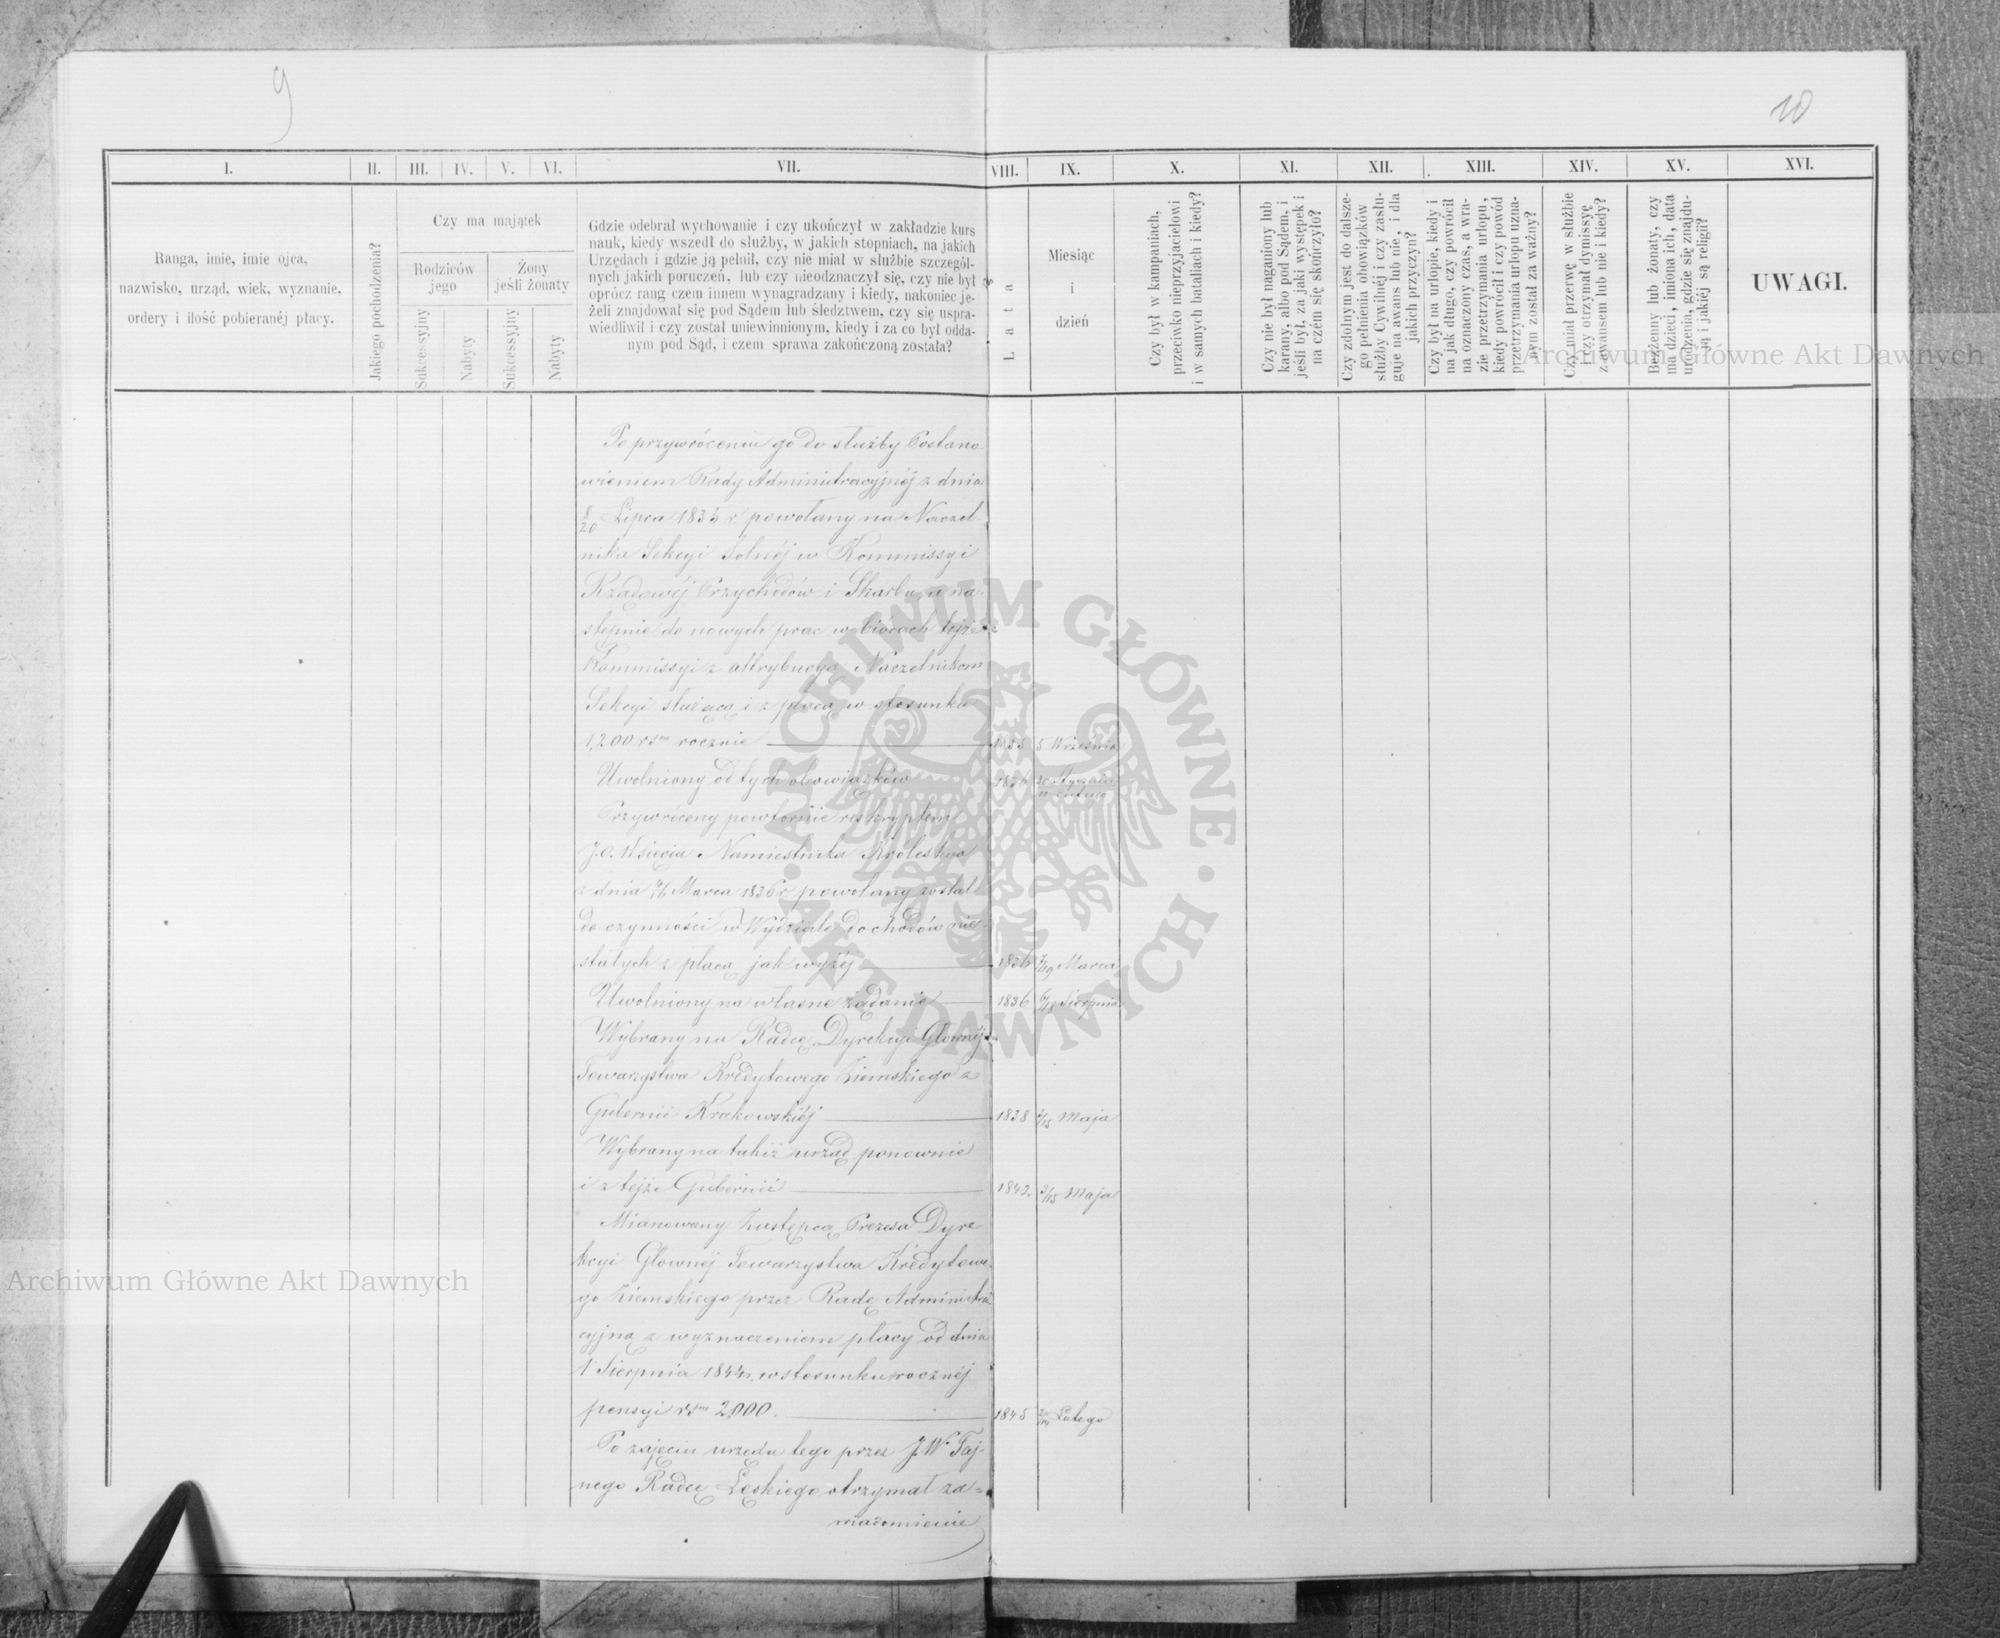 9
10
I.
II.
III.
IV.
V.
VI.
VII.
VIII.
IX.
X.
XI.
XII.
XIII.
XIV.
XV.
XVI.
Ranga, imie, imie ojca,
nazwisko, urząd, wiek, wyznanie,
ordery i ilość pobieranéj płacy.
Jakiego pochodzenia?
Czy ma majątek
Rodziców
jego
Żony
jeśli żonaty
Sukcessyjny
Nabyty
Sukcessyjny
Nabyty
Gdzie odebrał wychowanie i czy ukończył w zakładzie kurs
nauk, kiedy wszedł do służby, w jakich stopniach, na jakich
Urzędach i gdzie ją pełnił, czy nie miał w służbie szczegól-
nych jakich poruczeń, lub czy nieodznaczył się, czy nie był
oprócz rang czem innem wynagradzany i kiedy, nakoniec je-
żeli znajdował się pod Sądem lub śledztwem, czy się uspra-
wiedliwił i czy został uniewinnionym, kiedy i za co był odda-
nym pod Sąd, i czem sprawa zakończoną została?
Lata
Miesiąc
i
dzień
Czy był w kampaniach,
przeciwko nieprzyjacielowi
i w samych bataliach i kiedy?
Czy nie był naganiony lub
karany, albo pod Sądem, i
jeśli był, za jaki występek i
na czém się skończyło?
Czy zdolnym jest do dalsze-
go pełnienia obowiązków
służby Cywilnéj i czy zasłu-
guje na awans lub nie, i dla
jakich przyczyn?
Czy był na urlopie, kiedy i
na jak długo, czy powrócił
na oznaczony czas, a wra-
zie przetrzymania urlopu,
kiedy powrócił i czy powód
przetrzymania urlopu uzna-
nym został za ważny?
Czy miał przerwę w służbie
i czy otrzymał dymissyę
z awansem lub nie i kiedy?
Bezżenny lub żonaty, czy
ma dzieci, imiona ich, data
urodzenia, gdzie się znajdu-
ją i jakiéj są religii?
UWAGI.
Po przywróceniu go do służby Postano
wieniem Rady Administracyjnéj z dnia
8/20 Lipca 1835 r. powołany na Naczel-
nika Sekcyi Solnéj w Kommissyi
Rządowéj Przychodów i Skarbu, a na-
stępnie do nowych prac w biorach tejże
Kommissyi z attrybucyą Naczelnikom
Sekcyi służącą i z płacą w stosunku
1,200 rsm rocznie 1835 5 Września
Uwolniony od tych obowiązków 1836 30 Stycznia / 11 Lutego
Przywrócony powtórnie reskryptem
J.O. Księcia Namiestnika Królestwa
z dnia Marca 1836 r powołany został
do czynności w Wydziale dochodów nie-
stałych z płacą jak wyżéj 1836 7/19 Marca
Uwolniony na własne żądanie 1836 6/18 Sierpnia
Wybrany na Radcę Dyrekcyi Głownéj
Towarzystwa Kredytowego Ziemskiego z
Gubernii Krakowskiéj 1838 3/15 Maja
Wybrany na takiż urząd ponownie
i z tejże Gubernii 1842 3/15 Maja
Mianowany Zastępcą Prezesa Dyre
kcyi Głownéj Towarzystwa Kredytowe-
go Ziemskiego przez Radę Administra
cyjną z wyznaczeniem płacy od dnia
1 Sierpnia 1844 r. w stosunku rocznéj
pensyi rsm 2000. 1845 Lutego
Po zajęciu urzędu tego przez J.W. Taj-
nego Radcę Łęskiego otrzymał za=
wiadomienie
ARCHIWUM GŁÓWNE • AKT DAWNYCH •
Archiwum Główne Akt Dawnych
Archiwum Główne Akt Dawnych